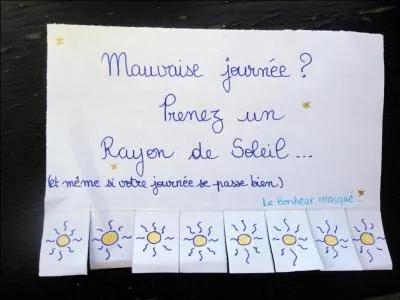 Mauvaise journée ?
Prenez un
Rayon de Soleil...
(et même si votre journée se passe bien)
Le Bonheur masqué